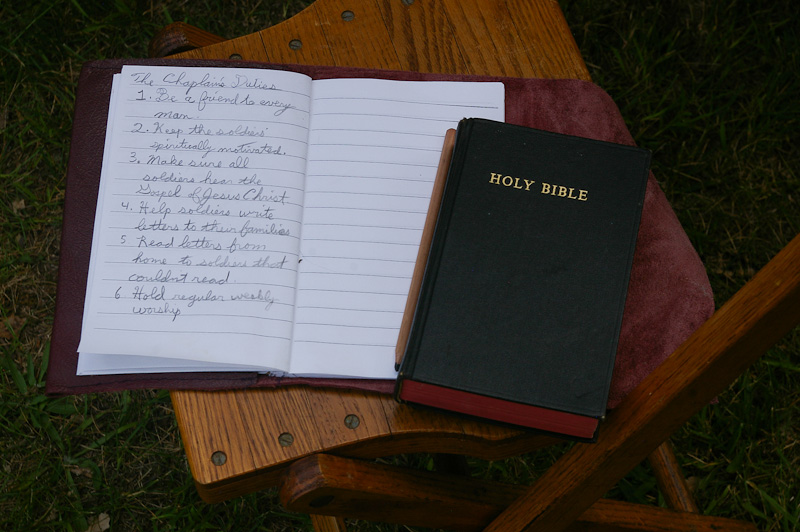 The Chaplain's Duties
1. Be a friend to every
man.
2. Keep the soldiers'
spiritually motivated.
3. Make sure all
soldiers hear the
Gospel of Jesus Christ.
4. Help soldiers write
letters to their families
5. Read letters from
home to soldiers that
couldnt read
6 Hold regular weekly
worship
HOLY BIBLE